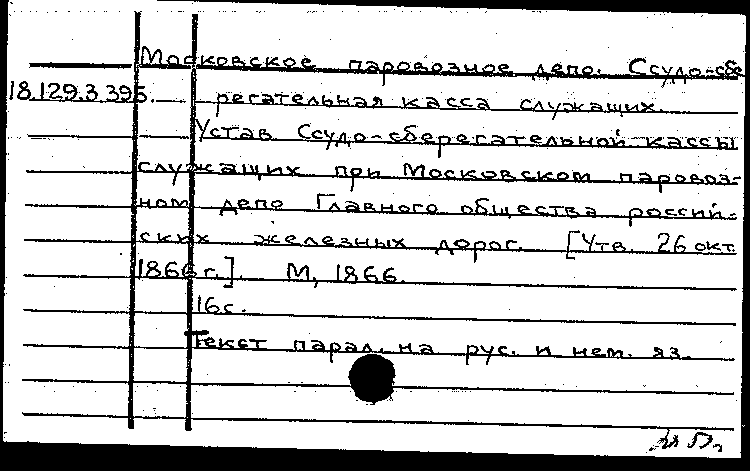 Московское паровозное депо. Ссудо-сбе
18.129.3.395. регательная касса служащих.
Устав Ссудо-сберегательной кассы
служащих при Московском паровоз-
ном депо Главного общества россий-
ских железных дорог. [Утв. 26 окт
1866 г.]. М, 1866.
16 с.
Текст парал. на рус. и нем. яз.